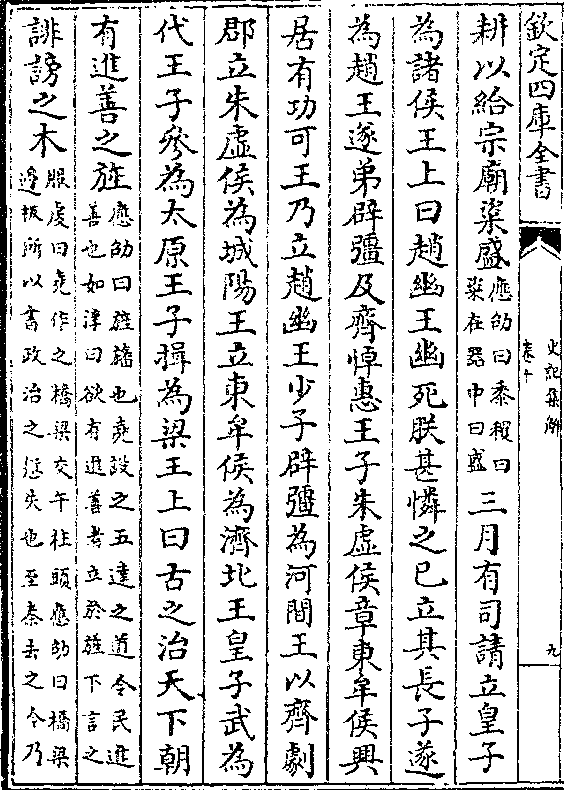 欽定四庫全書
史記集解
卷十
九
耕以給宗廟粢盛應劭曰黍稷曰粢在器中曰盛三月有司請立皇子
為諸侯王上曰趙幽王幽死朕甚憐之已立其長子遂
為趙王遂弟辟彊及齊悼惠王子朱虛侯章東牟侯興
居有功可王乃立趙幽王少子辟彊為河間王以齊劇
郡立朱虛侯為城陽王立東牟侯為濟北王皇子武為
代王子參為太原王子揖為梁王上曰古之治天下朝
有進善之旌應劭曰旌旛也堯設之五達之道令民進善也如淳曰欲有進善者立於旌下言之
誹謗之木服虔曰堯作之橋梁交午柱頭應劭曰橋梁邊板所以書政治之愆失也至秦去之今乃